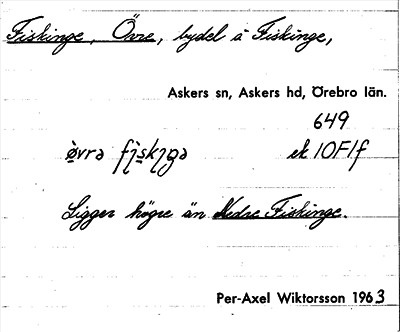 Fiskinge, Övre, bydel å Fiskinge,
Askers sn, Askers hd, Örebro län.
649
ek 10F1f
Ligger högre än Nedre Fiskinge.
Per-Axel Wiktorsson 1963